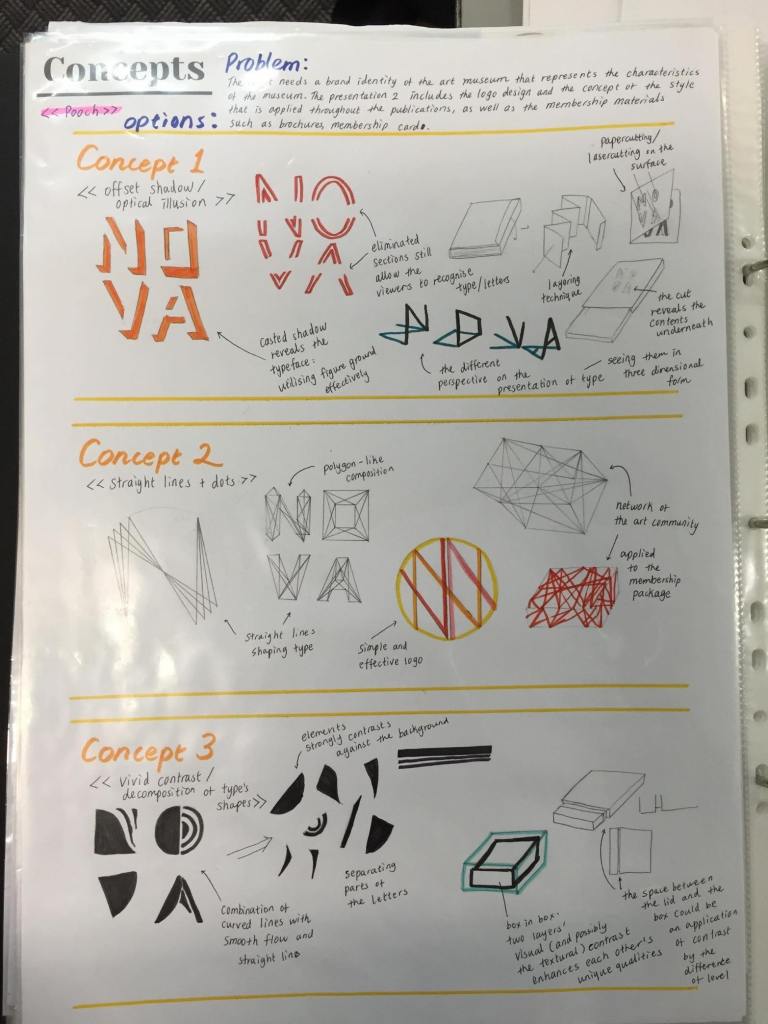 Concepts
<< Pooch >>
options:
Problem:
The needs a brand identity of the art museum that represents the characteristics
of the museum. The presentation 2 includes the logo design and the concept of the style
that is applied throughout the publications, as well as the membership materials
such as brochures, membership cards.
Concept 1
<< offset shadow/
optical illusion >>
NO
VA
NO
VA
eliminated
sections still
allow the
viewers to recognise
type/letters
casted shadow
reveals the
typeface:
utilising figure ground
effectively
papercutting/
lasercutting on the
surface
NO
VA
layering
technique
the cut
reveals the
contents
underneath
NOVA
the different
perspective on the
presentation of type
seeing them in
three dimensional
form
Concept 2
<< straight lines + dots >>
polygon-like
composition
N
NO
VA
straight lines
shaping type
N
simple and
effective logo
network of
the art community
applied
to the
membership
package
Concept 3
<< vivid contrast/
decomposition of type's
shapes>>
elements
strongly contrasts
against the background
NO
VA
combination of
curved lines with
smooth flow and
straight line
separating
parts of
the letters
box in box.
two layers'
visual (and possibly
the textural) contrast
enhances each other's
unique qualities
the space between
the lid and the
box could be
an application
of contrast
by the
difference
of level